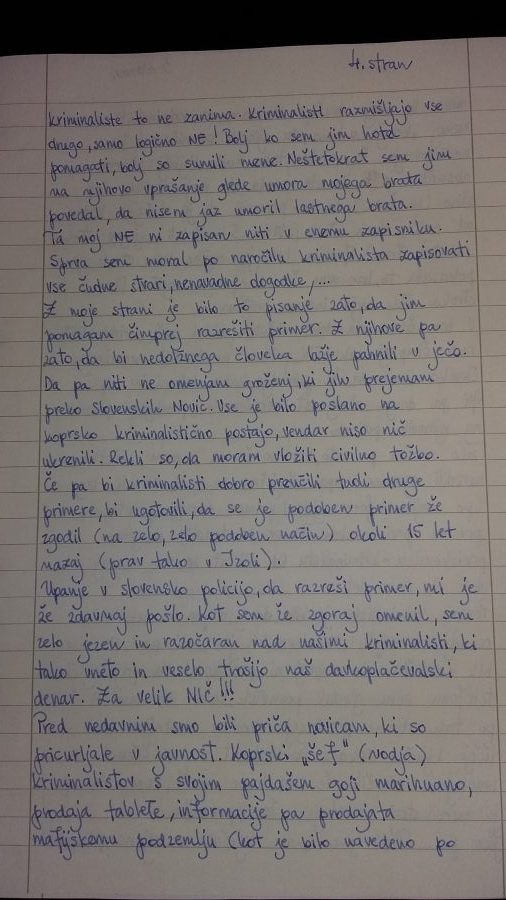 4. stran
kriminaliste to ne zanima. Kriminalisti razmišljajo vse
drugo, samo logično NE! Bolj ko sem jim hotel
pomagati, bolj so sumili mene. Neštetokrat sem jim
na njihovo vprašanje glede umora mojega brata
povedal, da nisem jaz umoril lastnega brata.
Ta moj NE ni zapisan niti v enemu zapisniku.
Sprva sem moral po naročilu kriminalista zapisovati
vse čudne stvari, nenavadne dogodke,...
Z moje strani je bilo to pisanje zato, da jim
pomagam čimprej razrešiti primer. Z njihove pa
zato, da bi nedolžnega človeka lažje pahnili v ječo.
Da pa niti ne omenjam groženj, ki jih prejemam
preko Slovenskih Novic. Vse je bilo poslano na
koprsko kriminalistično postajo, vendar niso nič
ukrenili. Rekli so, da moram vložiti civilno tožbo.
Če pa bi kriminalisti dobro preučili tudi druge
primere, bi ugotovili, da se je podoben primer že
zgodil (na zelo, zelo podoben način) okoli 15 let
nazaj (prav tako v Izoli).
Upanje v slovensko policijo, da razreši primer, mi je
že zdavnaj pošlo. Kot sem že zgoraj omenil, sem
zelo jezen in razočaran nad našimi kriminalisti, ki
tako vneto in veselo trošijo naš davkoplačevalski
denar. Za velik NIČ!!!
Pred nedavnim smo bili priča novicam, ki so
pricurljale v javnost. Koprski „šef" (vodja)
kriminalistov s svojim pajdašem goji marihuano,
prodaja tablete, informacije pa prodajata
mafijskemu podzemlju (kot je bilo navedeno po